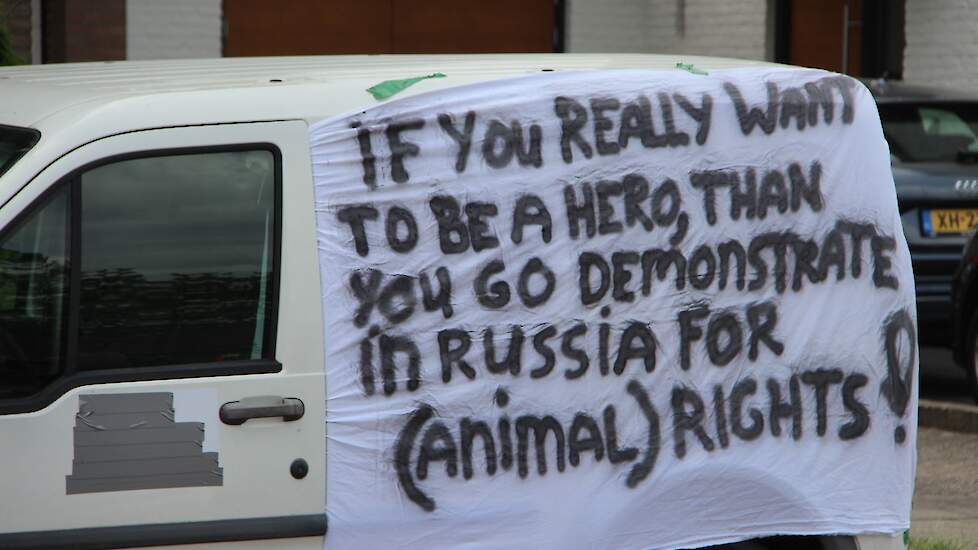 IF YOU REALLY WANT
TO BE A HERO, THAN
YOU GO DEMONSTRATE
in RUSSIA FOR
(Animal) RIGHTS!
XH-2